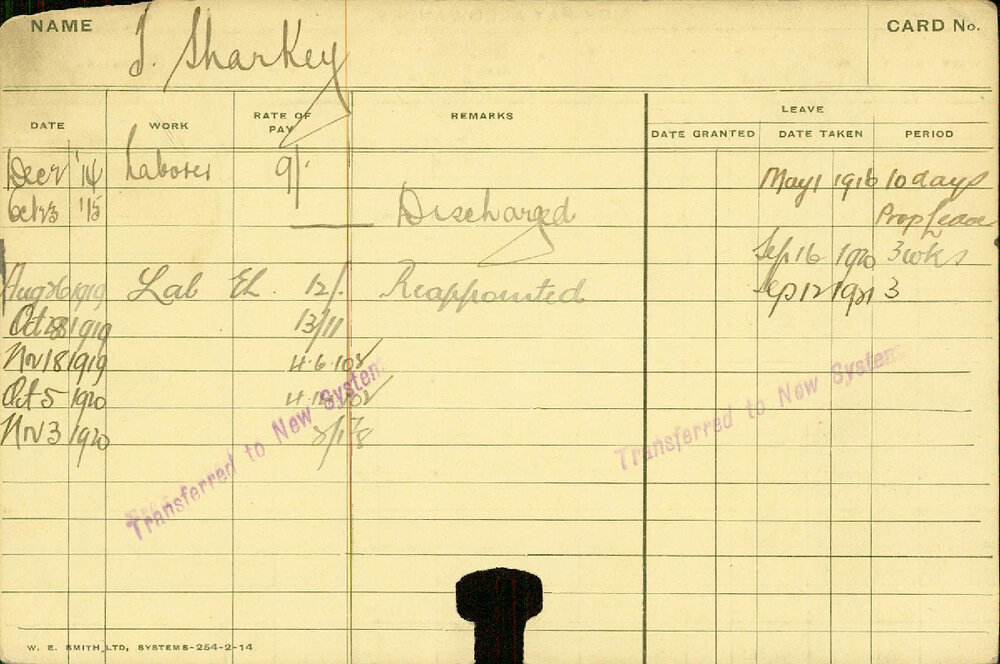 NAME
CARD No.
J. Sharkey
DATE WORK RATE OF PAY REMARKS LEAVE
DATE GRANTED DATE TAKEN PERIOD
Dec 2 '14 Laborer 9/- May 1 1916 10 days
Oct 23 '15 Discharged Prop Leave
Sep 16 1920 3 wks
Aug 26 1919 Lab El. 12/- Reappointed Sep 12 1921 3
Oct 28 1919 13/11
Nov 18 1919 4.6.10
Oct 5 1920
Nov 3 1920
Transferred to New System
Transferred to New System
W. E. SMITH LTD, SYSTEMS-254-2-14